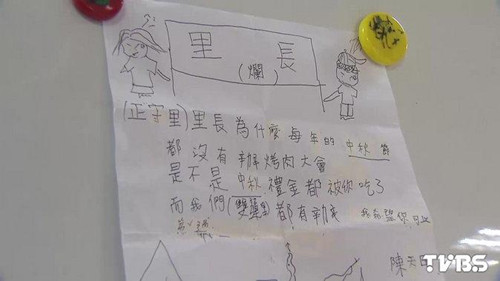 里 長
(爛)
(正守里)里長為什麼每年的中秋節
都沒有辦烤肉大會
是不是中秋禮金都被你吃了
而我們(雙葉里)都有
陳
TVBS